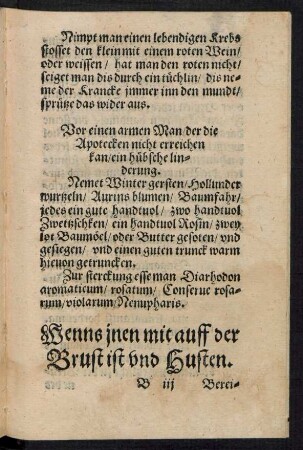 Nimpt man einen lebendigen Krebs
stosset den klein mit einem roten Wein/
oder weissen / hat man den roten nicht/
seiget man dis durch ein tüchlin/ dis ne-
me der Krancke jmmer inn den mundt/
sprütze das wider aus.
Vor einen armen Man der die
Apotecken nicht erreichen
kan/ ein hübsche lin-
derung.
Nemet Winter gersten/ Hollunder
wurtzeln/ Aurins blumen/ Baumfahr/
jedes ein gute handtuol / zwo handtuol
Zwetzschken/ ein handtuol Rosin/ zwey
lot Baumöel/ oder Butter gesoten/ vnd
gesiegen/ vnd einen guten trunck warm
hieuon getruncken.
Zur sterckung esse man Diarhodon
aromaticum/ rosatum/ Conserue rosa-
rum/ violarum/ Nenupharis.
Wenns jnen mit auff der
Brust ist vnd Husten.
B iij Berei-